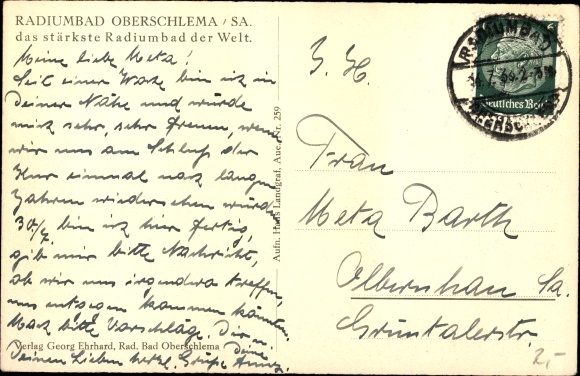 RADIUMBAD OBERSCHLEMA / SA.
das stärkste Radiumbad der Welt.
Meine liebe Meta!
Seit einer Woche bin ich in
Deiner Nähe und würde
mich sehr, sehr freuen, wenn
wir uns am Schluß der
Kur einmal nach langen
Jahren wiedersehen würden
30./7. bin ich hier fertig,
gib mir bitte Nachricht,
ob wir uns irgendwo treffen,
uns entgegen kommen könnten.
Mach bitte Vorschläge. Dir u.
Deinen Lieben herzl. Grüße Deine
Verlag Georg Ehrhard, Rad. Bad Oberschlema
Aufn. Hans Landgraf, Aue, Nr. 259
RADIUMBAD
OBERSCHLEMA
6
Deutsches Reich
Frau
Meta Barth
Olbernhau Sa.
Grüntalerstr.
2,-